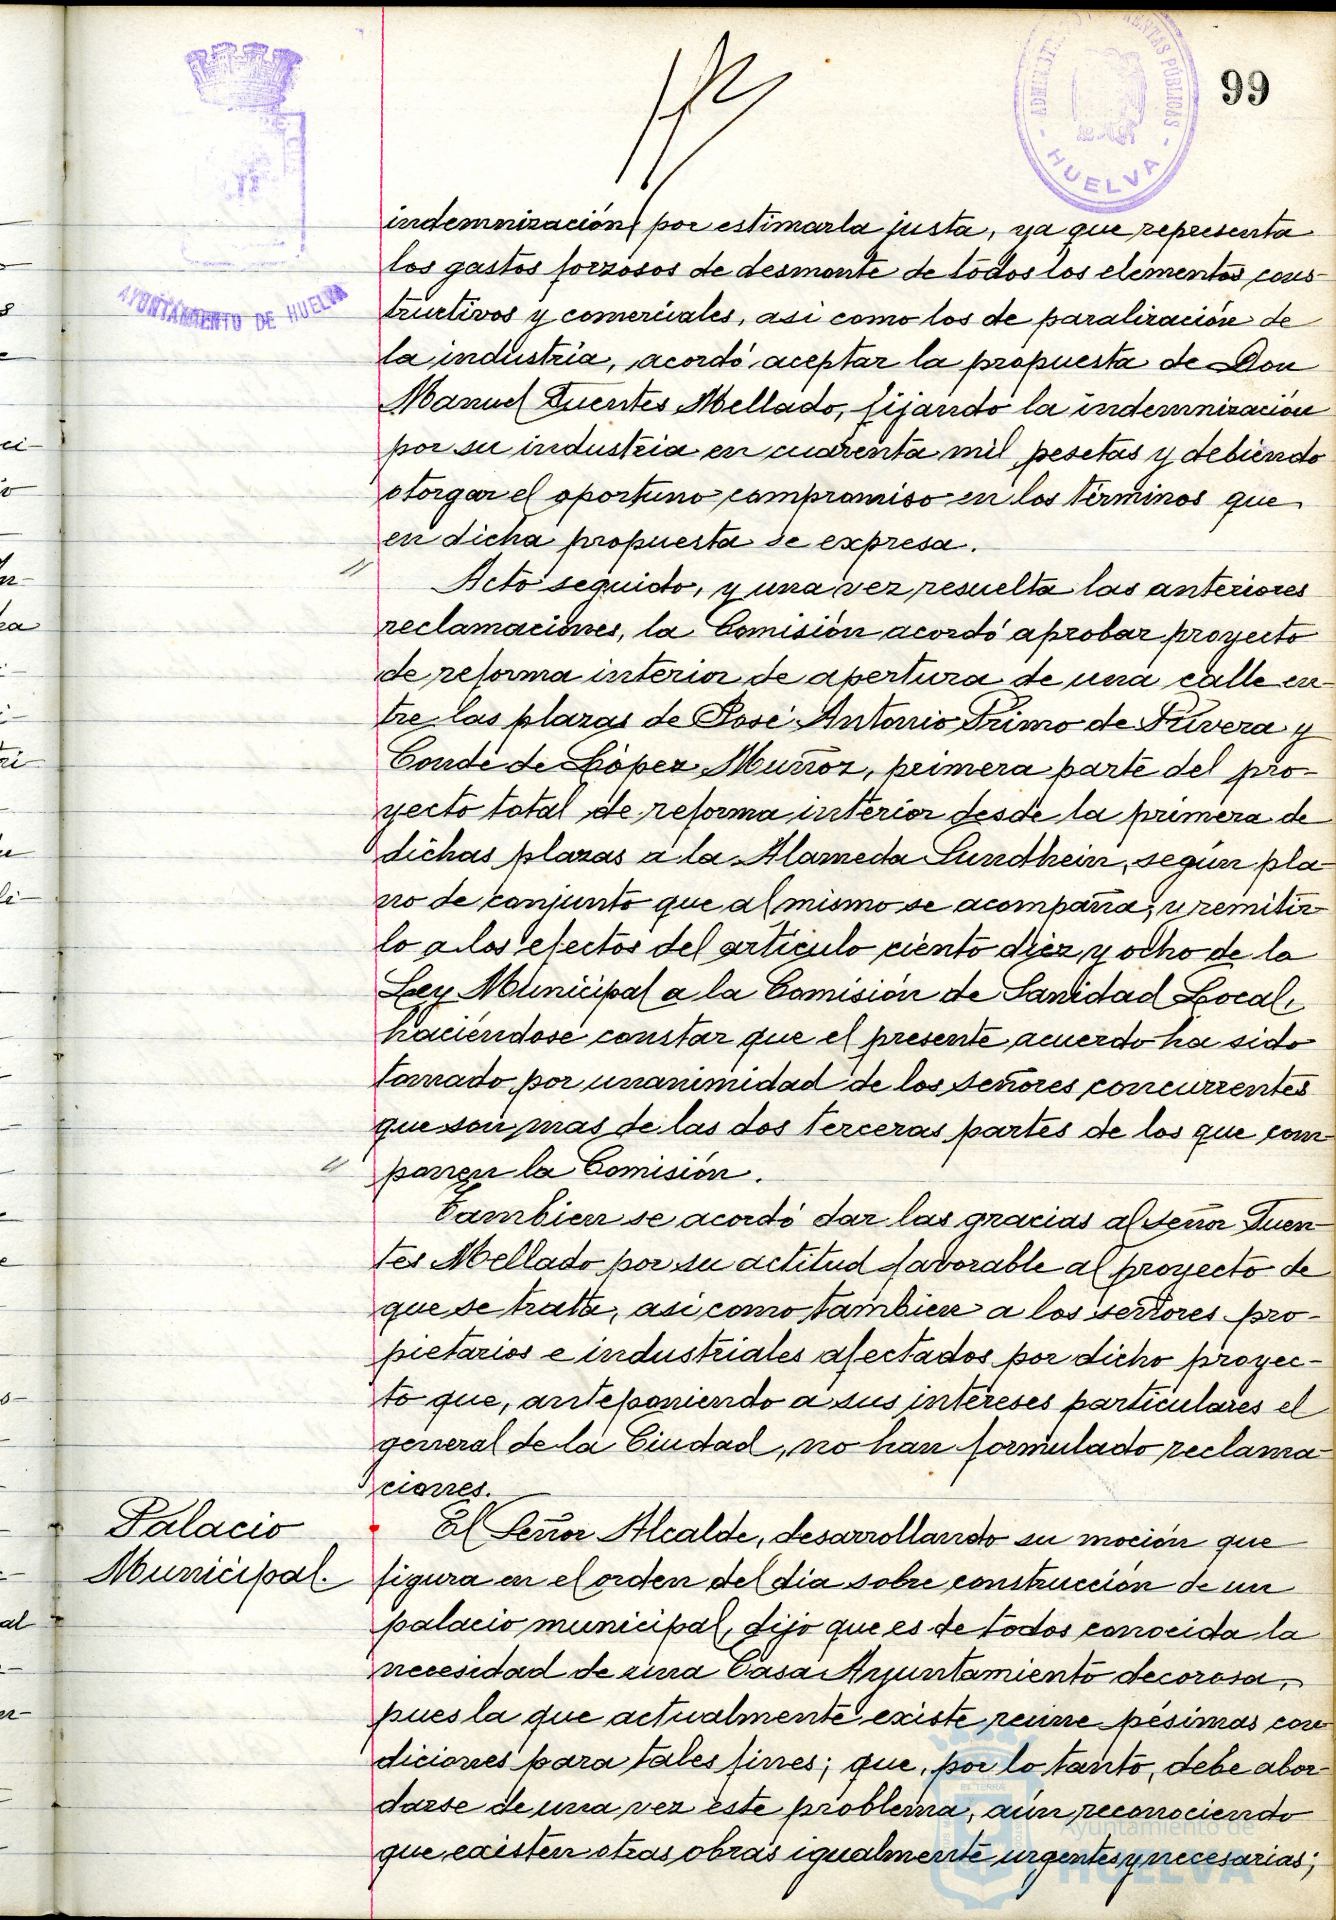 99
ADMINISTRACION DE RENTAS PÚBLICAS
- HUELVA -
AYUNTAMIENTO DE HUELVA
indemnización por estimarla justa, ya que representa
los gastos forzosos de desmonte de todos los elementos cons-
tructivos y comerciales, asi como los de paralización de
la industria, acordó aceptar la propuesta de Don
Manuel Fuentes Mellado, fijando la indemnización
por su industria en cuarenta mil pesetas y debiendo
otorgar el oportuno compromiso en los términos que
en dicha propuesta se expresa.
Acto seguido, y una vez resuelta las anteriores
reclamaciones, la Comisión acordó aprobar proyecto
de reforma interior de apertura de una calle en-
tre las plazas de José Antonio Primo de Rivera y
Conde de López Muñoz, primera parte del pro-
yecto total de reforma interior desde la primera de
dichas plazas a la Alameda Sundhein, según pla-
no de conjunto que al mismo se acompaña, y remitir-
lo a los efectos del artículo ciento diez y ocho de la
Ley Municipal a la Comisión de Sanidad Local,
haciéndose constar que el presente acuerdo ha sido
tomado por unanimidad de los señores concurrentes
que son mas de las dos terceras partes de los que com-
ponen la Comisión.
Tambien se acordó dar las gracias al señor Fuen-
tes Mellado por su actitud favorable al proyecto de
que se trata, asi como tambien a los señores pro-
pietarios e industriales afectados por dicho proyec-
to que, anteponiendo a sus intereses particulares el
general de la Ciudad, no han formulado reclama-
ciones.
Palacio
Municipal.
El Señor Alcalde, desarrollando su moción que
figura en el orden del día sobre construcción de un
palacio municipal, dijo que es de todos conocida la
necesidad de una Casa Ayuntamiento decorosa,
pues la que actualmente existe reune pésimas con-
diciones para tales fines; que, por lo tanto, debe abor-
darse de una vez este problema, aún reconociendo
que existen otras obras igualmente urgentes y necesarias;
Ayuntamiento de
HUELVA